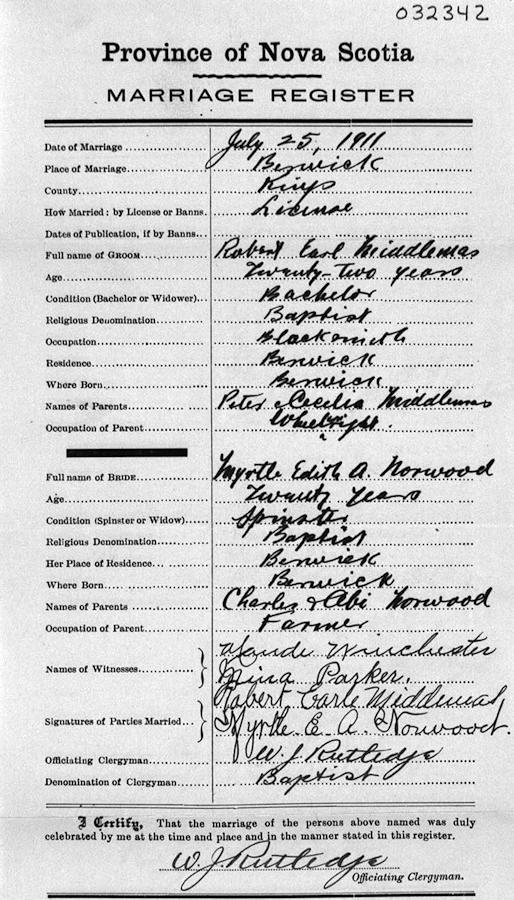 032342
Province of Nova Scotia
MARRIAGE REGISTER
Date of Marriage July 25, 1911
Place of Marriage Berwick
County Kings
How Married: by License or Banns. License
Dates of Publication, if by Banns
Full name of GROOM Robert Earl Middlemas
Age Twenty-two years
Condition (Bachelor or Widower) Bachelor
Religious Denomination Baptist
Occupation Blacksmith
Residence Berwick
Where Born Berwick
Names of Parents Peter & Cecilia Middlemas
Occupation of Parent Wheelwright.
Full name of BRIDE Myrtle Edith A. Norwood
Age Twenty years
Condition (Spinster or Widow) Spinster
Religious Denomination Baptist
Her Place of Residence Berwick
Where Born Berwick
Names of Parents Charles & Abi Norwood
Occupation of Parent Farmer
Names of Witnesses Maude Winchester
Nina Parker.
Signatures of Parties Married Robert Earle Middlemas
Myrtle E. A. Norwood.
Officiating Clergyman W. J. Rutledge
Denomination of Clergyman Baptist
I Certify, That the marriage of the persons above named was duly
celebrated by me at the time and place and in the manner stated in this register.
W. J. Rutledge
Officiating Clergyman.